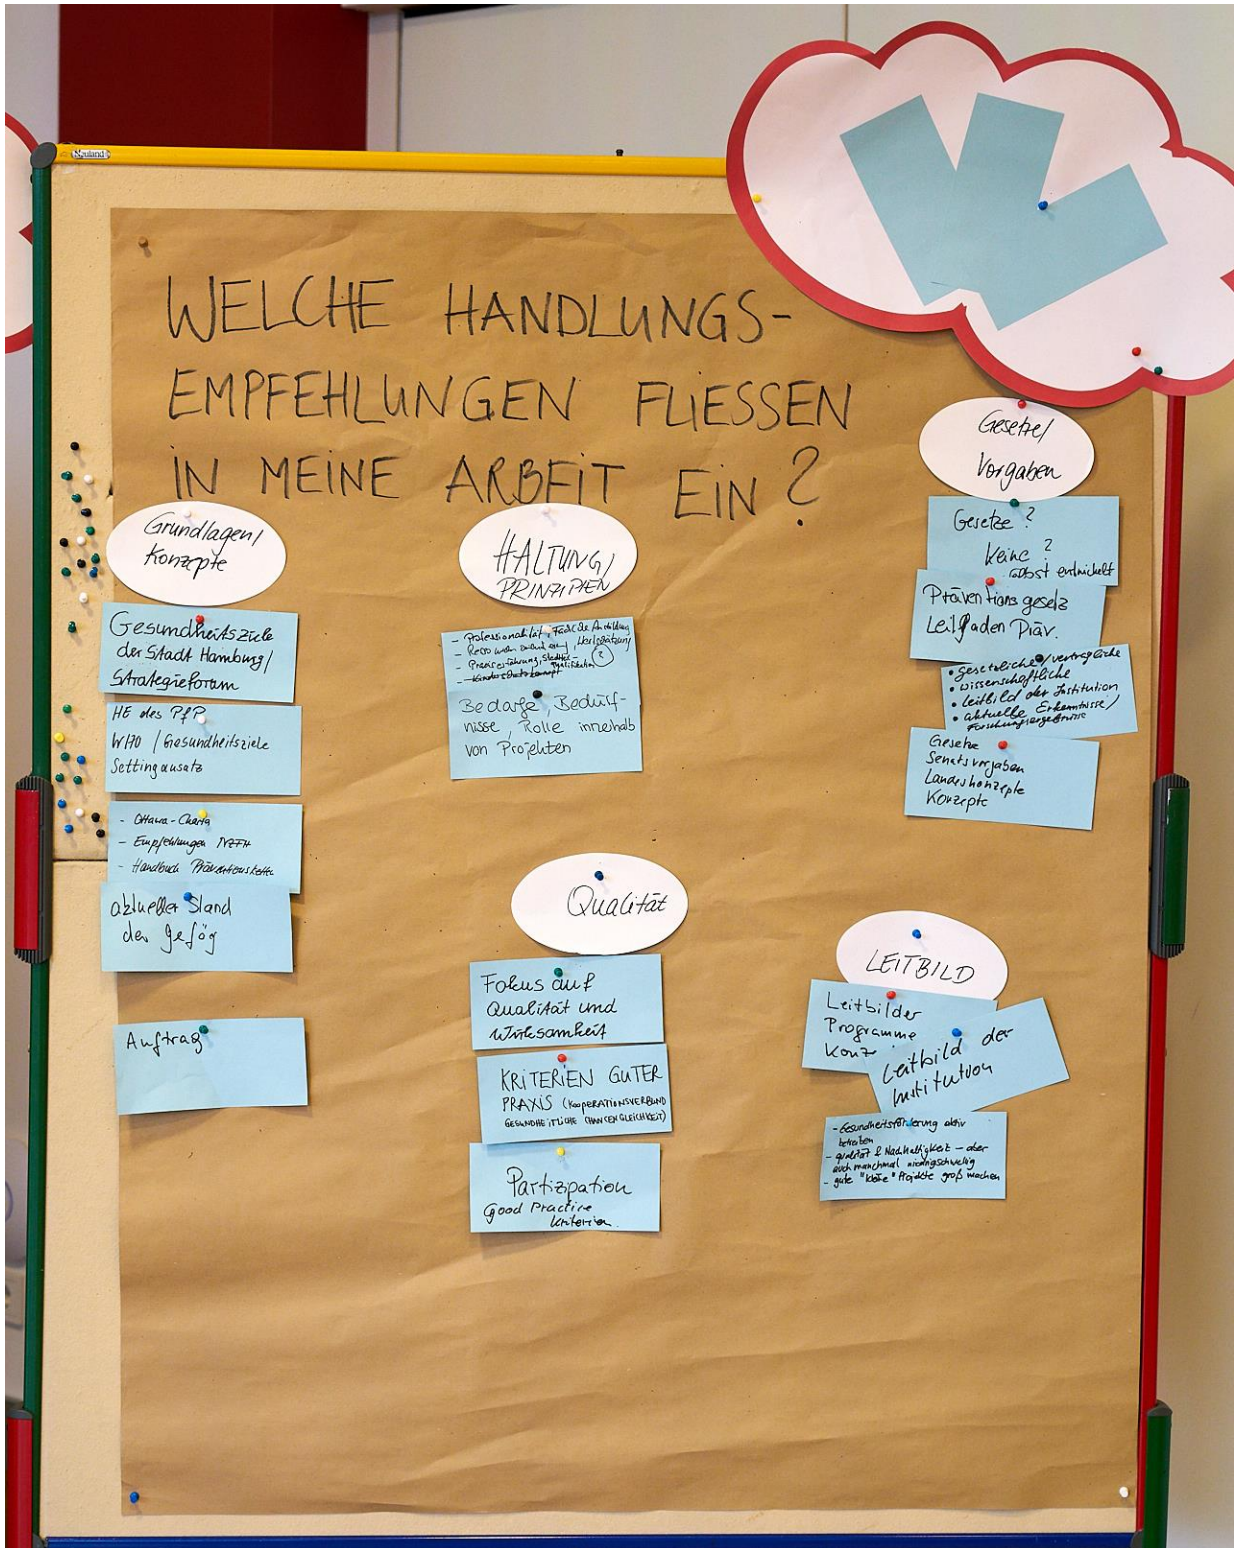 Neuland
WELCHE HANDLUNGS-
EMPFEHLUNGEN FLIESSEN
IN MEINE ARBEIT EIN?
Grundlagen/
Konzepte
Gesundheitsziele
der Stadt Hamburg/
Strategieforum
HE des PfP
WHO / Gesundheitsziele
Settingansatz
- Ottawa-Charta
- Empfehlungen NZFH
- Handbuch Präventionskette
aktueller Stand
der Gefög
Auftrag
HALTUNG/
PRINZIPIEN
- Professionalität, Fachliche Ausbildung
- Praxiserfahrung,
- Kinderschutzkonzept
Bedarfe, Bedürf-
nisse, Rolle innerhalb
von Projekten
Qualität
Fokus auf
Qualität und
Wirksamkeit
KRITERIEN GUTER
PRAXIS (KOOPERATIONSVERBUND
GESUNDHEITLICHE CHANCENGLEICHHEIT)
Partizipation
Good Practice
Kriterien
Gesetze/
Vorgaben
Gesetze ?
Keine ?
selbst entwickelt
Präventionsgesetz
Leitfaden Präv.
• gesetzliche/vertragliche
• wissenschaftliche
• Leitbild der Institution
• aktuelle Erkenntnisse/
Forschungsergebnisse
Gesetze
Senatsvorgaben
Landeskonzepte
Konzepte
LEITBILD
Leitbilder
Programme
Konz
Leitbild der
Institution
- Gesundheitsförderung aktiv
betreiben
- Qualität & Nachhaltigkeit – aber
auch manchmal niedrigschwellig
- gute "kleine" Projekte groß machen